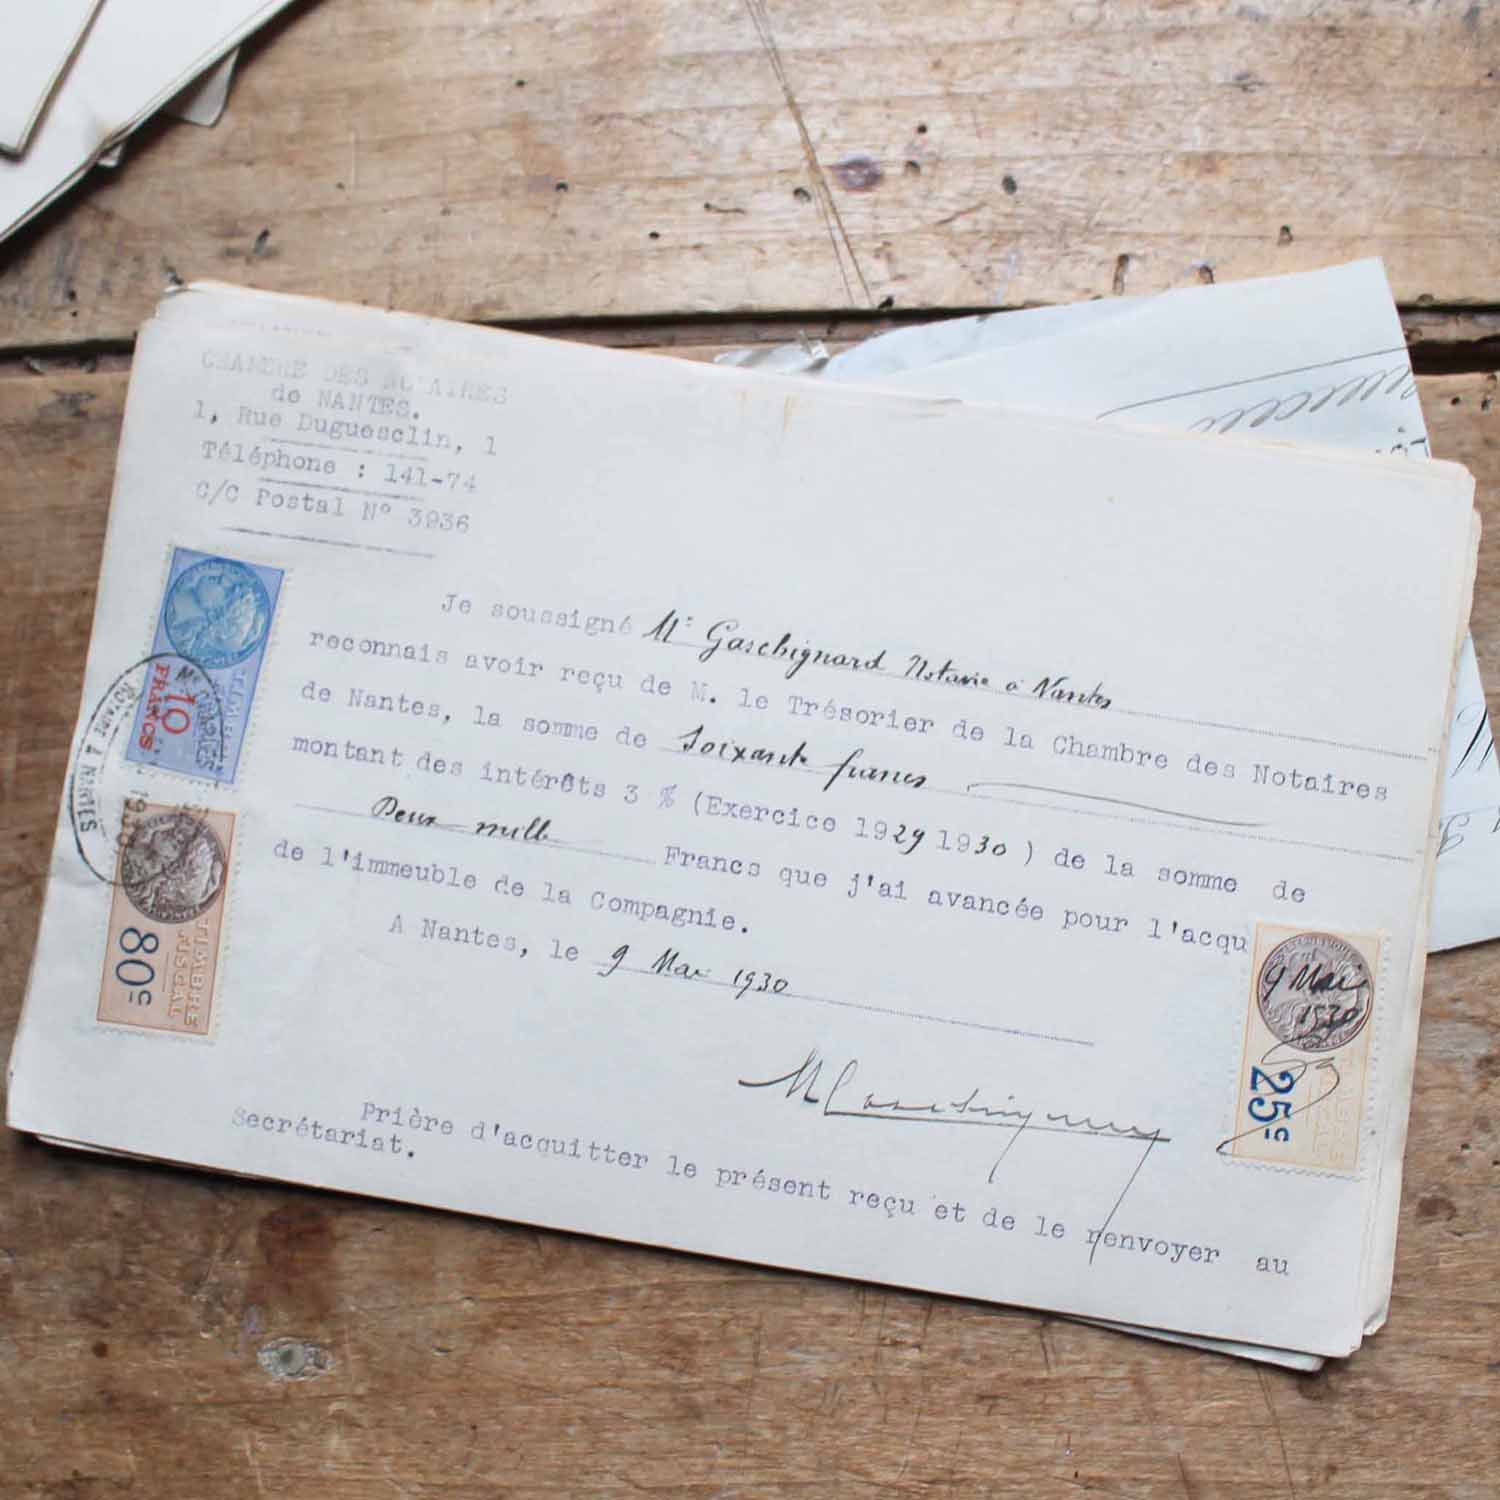 CHAMBRE DES NOTAIRES
de NANTES.
1, Rue Duguesclin, 1
Téléphone : 141-74
C/C Postal N° 3936
Je soussigné Me Gaschignard Notaire à Nantes
reconnais avoir reçu de M. le Trésorier de la Chambre des Notaires
de Nantes, la somme de Soixante francs
montant des intérêts 3 % (Exercice 1929 1930 ) de la somme de
Deux mille Francs que j'ai avancée pour l'acqu
de l'immeuble de la Compagnie.
A Nantes, le 9 Mai 1930
Prière d'acquitter le présent reçu et de le renvoyer au
Secrétariat.
10
FRANCS
NOTAIRE A NANTES
1930
80c
TIMBRE
FISCAL
9 Mai
1930
25c